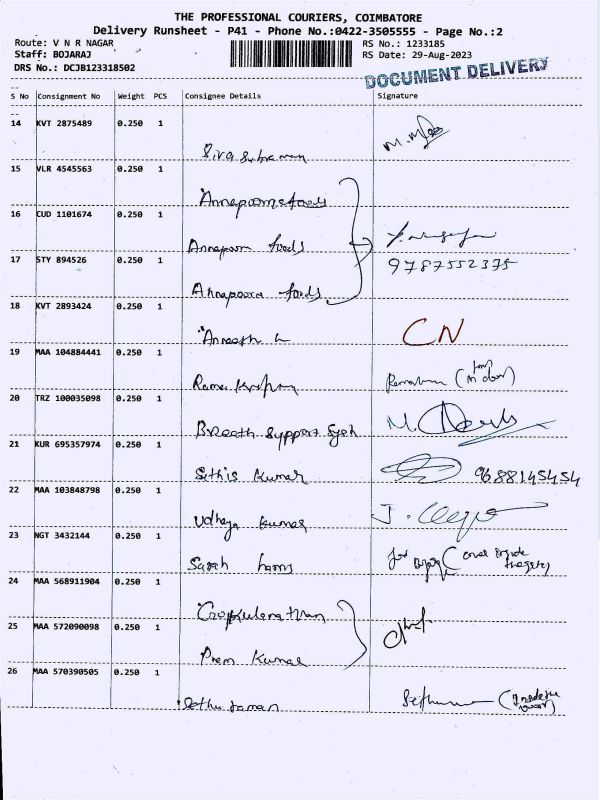 THE PROFESSIONAL COURIERS, COIMBATORE
Delivery Runsheet - P41 - Phone No.:0422-3505555 - Page No.:2
Route: V N R NAGAR
RS No.: 1233185
Staff: BOJARAJ
RS Date: 29-Aug-2023
DRS No.: DCJB123318502
DOCUMENT DELIVERY
S No Consignment No Weight PCS Consignee Details Signature
14 KVT 2875489 0.250 1
Siva subraman
15 VLR 4545563 0.250 1
Annapoorna foods
16 CUD 1101674 0.250 1
Annapoorn foods
17 STY 894526 0.250 1
9787552375
Annapoorna foods
18 KVT 2893424 0.250 1
CN
19 MAA 104884441 0.250 1
Rama Krishna
20 TRZ 100035098 0.250 1
Breath Support
21 KUR 695357974 0.250 1
Sethis Kumar 9688145454
22 MAA 103848798 0.250 1
Udhaya Kumar
23 NGT 3432144 0.250 1
Sarah
for
24 MAA 568911904 0.250 1
25 MAA 572090098 0.250 1
Prem Kumar
26 MAA 570390505 0.250 1
Sethu raman